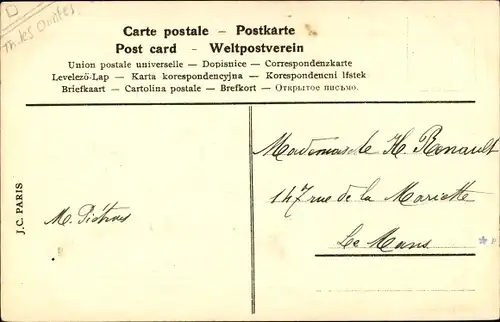 Th. les Ondes
Carte postale – Postkarte
Post card – Weltpostverein
Union postale universelle – Dopisnice – Correspondenzkarte
Levelező-Lap – Karta korespondencyjna – Korespondencni lfstek
Briefkaart – Cartolina postale – Brefkort – Открытое письмо.
J.C. PARIS
Mademoiselle H. Renault
147 rue de la Mariette
Le Mans
M.